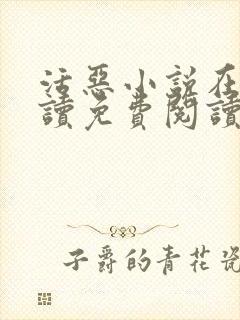 活惡小說在
讀免費閱讀
子爵的青花瓷